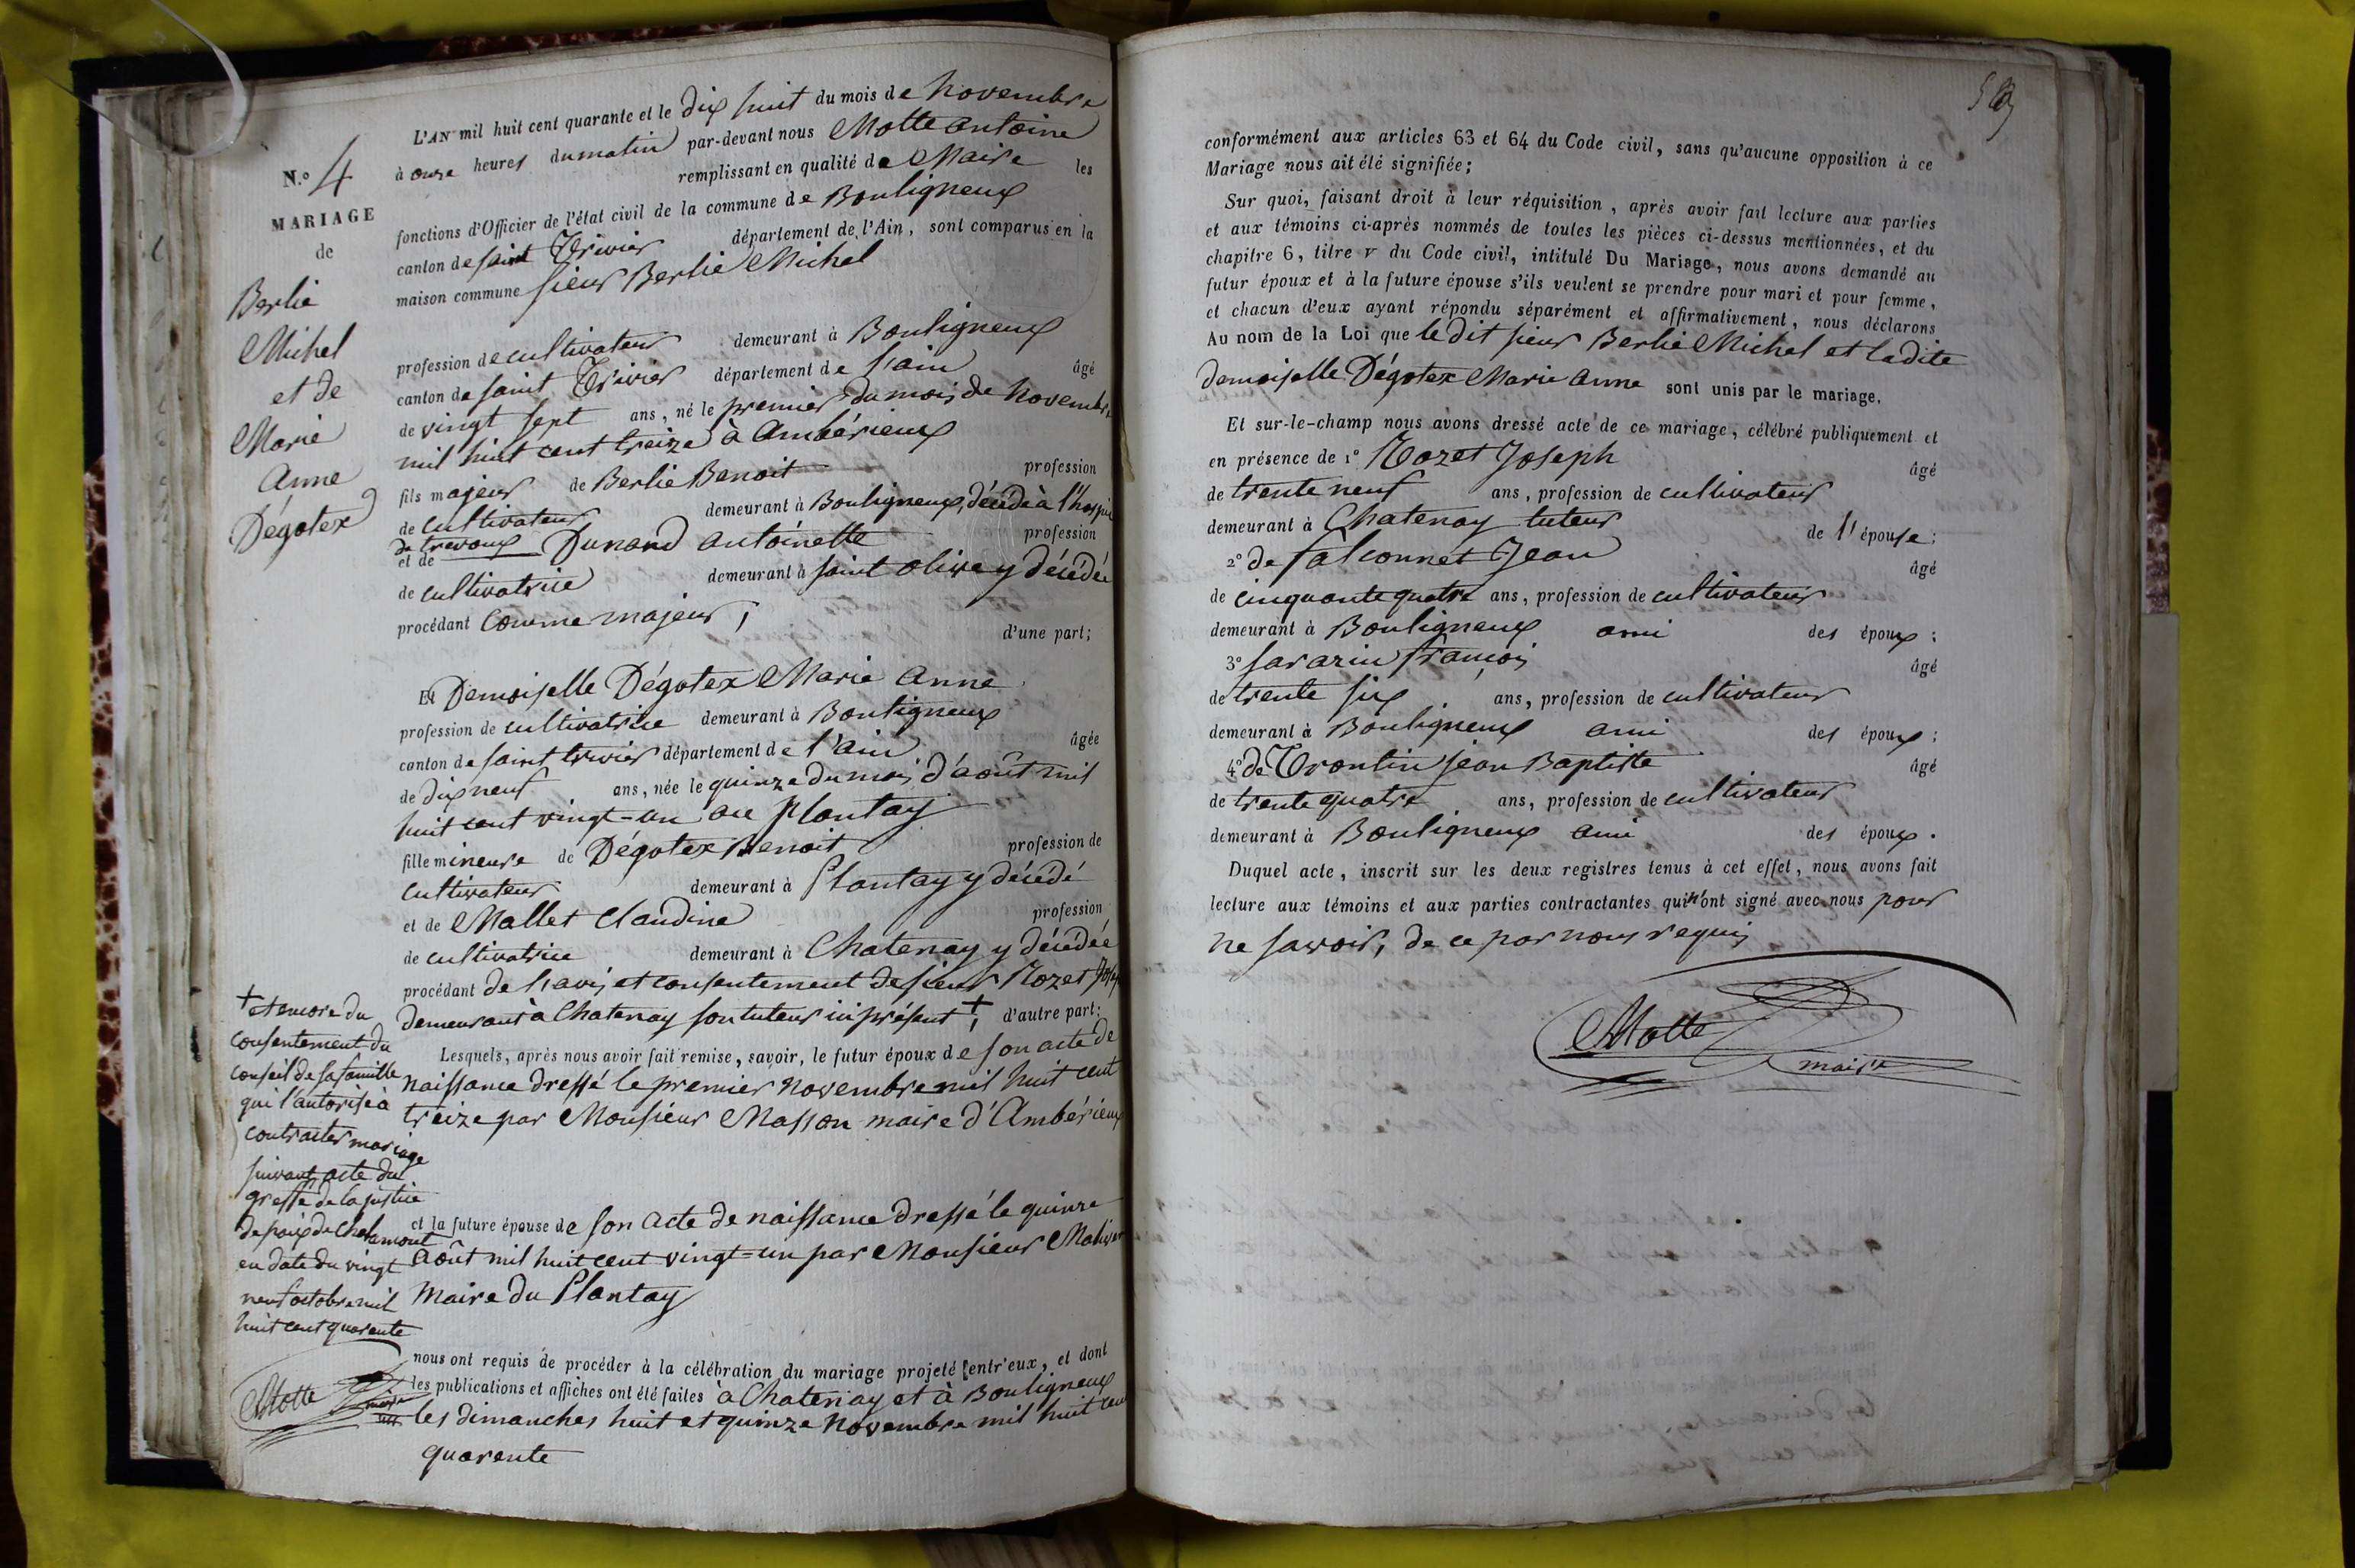 N.º 4
MARIAGE
de
Berlie
Michel
et de
Marie
Anne
Dégotex
L'AN mil huit cent quarante et le dix huit du mois de Novembre
à onze heures du matin par-devant nous Motte antoine
remplissant en qualité de Maire les
fonctions d'Officier de l'état civil de la commune de Bouligneux
canton de saint Trivier département de l'Ain, sont comparus en la
maison commune sieur Berlie Michel
profession de cultivateur demeurant à Bouligneux
canton de saint Trivier département de l'ain âgé
de vingt sept ans, né le premier du mois de Novembre
mil huit cent treize à Ambérieux
fils majeur de Berlie Benoit profession
de cultivateur demeurant à Bouligneux, décédé à l'hospice
de trevoux
et de Dunand antoinette profession
de cultivatrice demeurant à saint olive y décédée
procédant comme majeur, d'une part;
Et Demoiselle Dégotex Marie Anne
profession de cultivatrice demeurant à Bouligneux
canton de saint trivier département de l'ain âgée
de dix neuf ans, née le quinze du mois d'août mil
huit cent vingt=un au Plantay
fille mineure de Dégotex Benoit profession de
cultivateur demeurant à Plantay y décédé
et de Mallet Claudine profession
de cultivatrice demeurant à Chatenay y décédée
procédant de l'avis et consentement de sieur Rozet Joseph
demeurant à Chatenay son tuteur ici présent +; d'autre part:
+ et encore du
consentement du
conseil de sa famille
qui l'autorise à
contracter mariage
suivant acte du
greffe de la justice
de paix de Chalamont
en date du vingt
neuf octobre mil
huit cent quarente
Motte maire
Lesquels, après nous avoir fait remise, savoir, le futur époux de son acte de
naissance dressé le premier Novembre mil huit cent
treize par Monsieur Masson maire d'Ambérieux
et la future épouse de son acte de naissance dressé le quinze
Août mil huit cent vingt=un par Monsieur
Maire du Plantay
nous ont requis de procéder à la célébration du mariage projeté entr'eux, et dont
les publications et affiches ont été faites à Chatenay et à Bouligneux
les dimanches huit et quinze Novembre mil huit cent
quarente
conformément aux articles 63 et 64 du Code civil, sans qu'aucune opposition à ce
Mariage nous ait été signifiée;
Sur quoi, faisant droit à leur réquisition, après avoir fait lecture aux parties
et aux témoins ci-après nommés de toutes les pièces ci-dessus mentionnées, et du
chapitre 6, titre v du Code civil, intitulé Du Mariage, nous avons demandé au
futur époux et à la future épouse s'ils veulent se prendre pour mari et pour femme,
et chacun d'eux ayant répondu séparément et affirmativement, nous déclarons
Au nom de la Loi que le dit sieur Berlie Michel et la dite
demoiselle Dégotex Marie Anne sont unis par le mariage.
Et sur-le-champ nous avons dressé acte de ce mariage, célébré publiquement et
en présence de 1º Rozet Joseph âgé
de trente neuf ans, profession de cultivateur
demeurant à Chatenay tuteur de l'épouse;
2º de falconnet Jean âgé
de cinquante quatre ans, profession de cultivateur
demeurant à Bouligneux ami des époux;
3º sarazin françois âgé
de trente six ans, profession de cultivateur
demeurant à Bouligneux ami des époux;
4º de Trontin jean Baptiste âgé
de trente quatre ans, profession de cultivateur
demeurant à Bouligneux ami des époux.
Duquel acte, inscrit sur les deux registres tenus à cet effet, nous avons fait
lecture aux témoins et aux parties contractantes qui n'ont signé avec nous pour
ne savoir, de ce par nous requis
Motte
maire